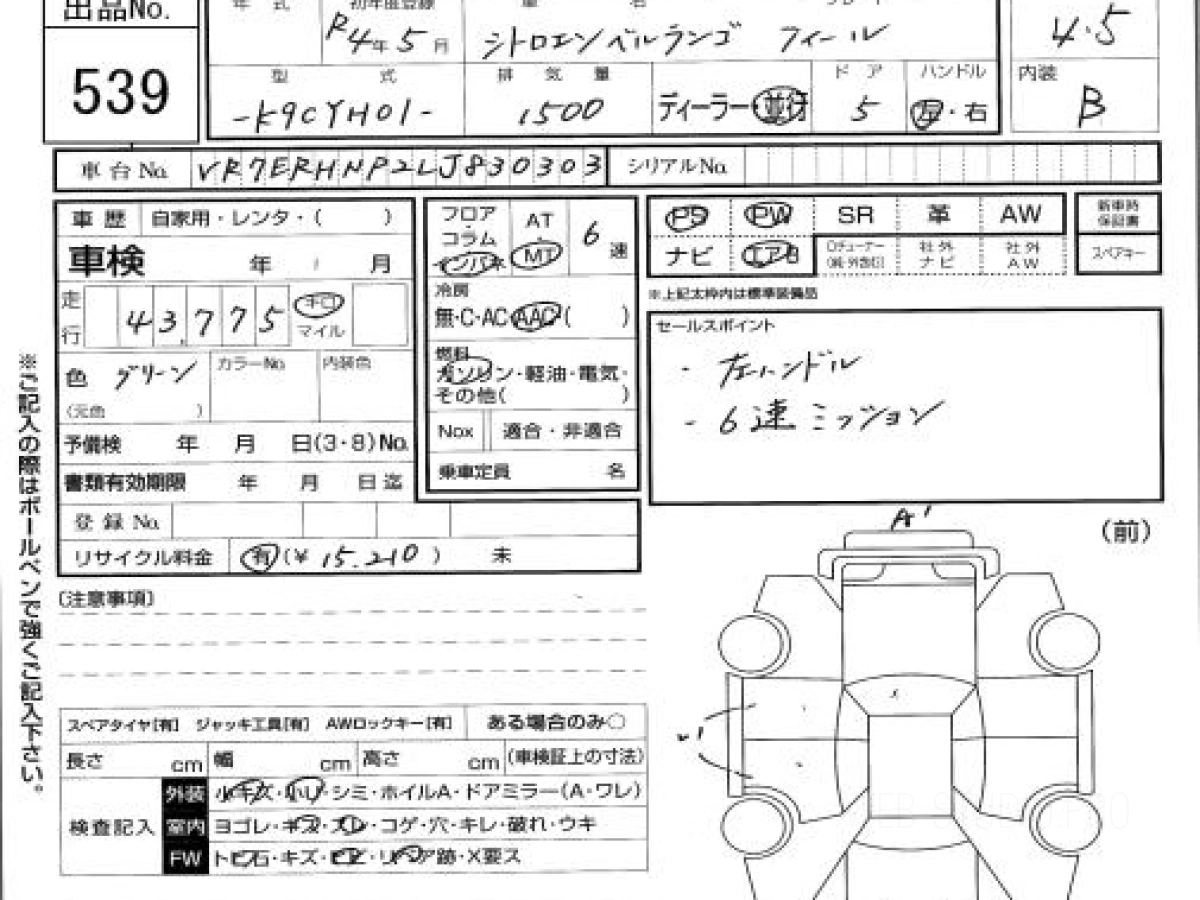 出品No.
539
年 式 初年度登録 車 名 グレード
R4年5月 シトロエンベルランゴ フィール 4.5
型 式 排 気 量 ドア ハンドル 内装
-K9CYH01- 1500 ディーラー・並行 5 左・右 B
車台No. VR7ERHNP2LJ830303 シリアルNo.
車歴 自家用・レンタ・( )
車検 年 月
走行 43,775 キロ マイル
色 グリーン カラーNo. 内装色
(元色 )
予備検 年 月 日(3・8)No.
書類有効期限 年 月 日迄
登録No.
リサイクル料金 有(¥15.210) 未
フロア コラム インパネ AT・MT 6速
冷房
無・C・AC・AAC( )
燃料
ガソリン・軽油・電気・
その他( )
Nox 適合・非適合
乗車定員 名
PS PW SR 革 AW
ナビ エアB 社外ナビ 社外AW
新車時保証書
スペアキー
※上記太枠内は標準装備品
セールスポイント
・左ハンドル
・6速ミッション
※ご記入の際はボールペンで強くご記入下さい。
〔注意事項〕
A1
(前)
スペアタイヤ[有] ジャッキ工具[有] AWロックキー[有] ある場合のみ○
長さ cm 幅 cm 高さ cm (車検証上の寸法)
検査記入
外装 小キズ・小凹・シミ・ホイルA・ドアミラー(A・ワレ)
室内 ヨゴレ・キズ・スレ・コゲ・穴・キレ・破れ・ウキ
FW トビ石・キズ・ヒビ・リペア跡・X要ス